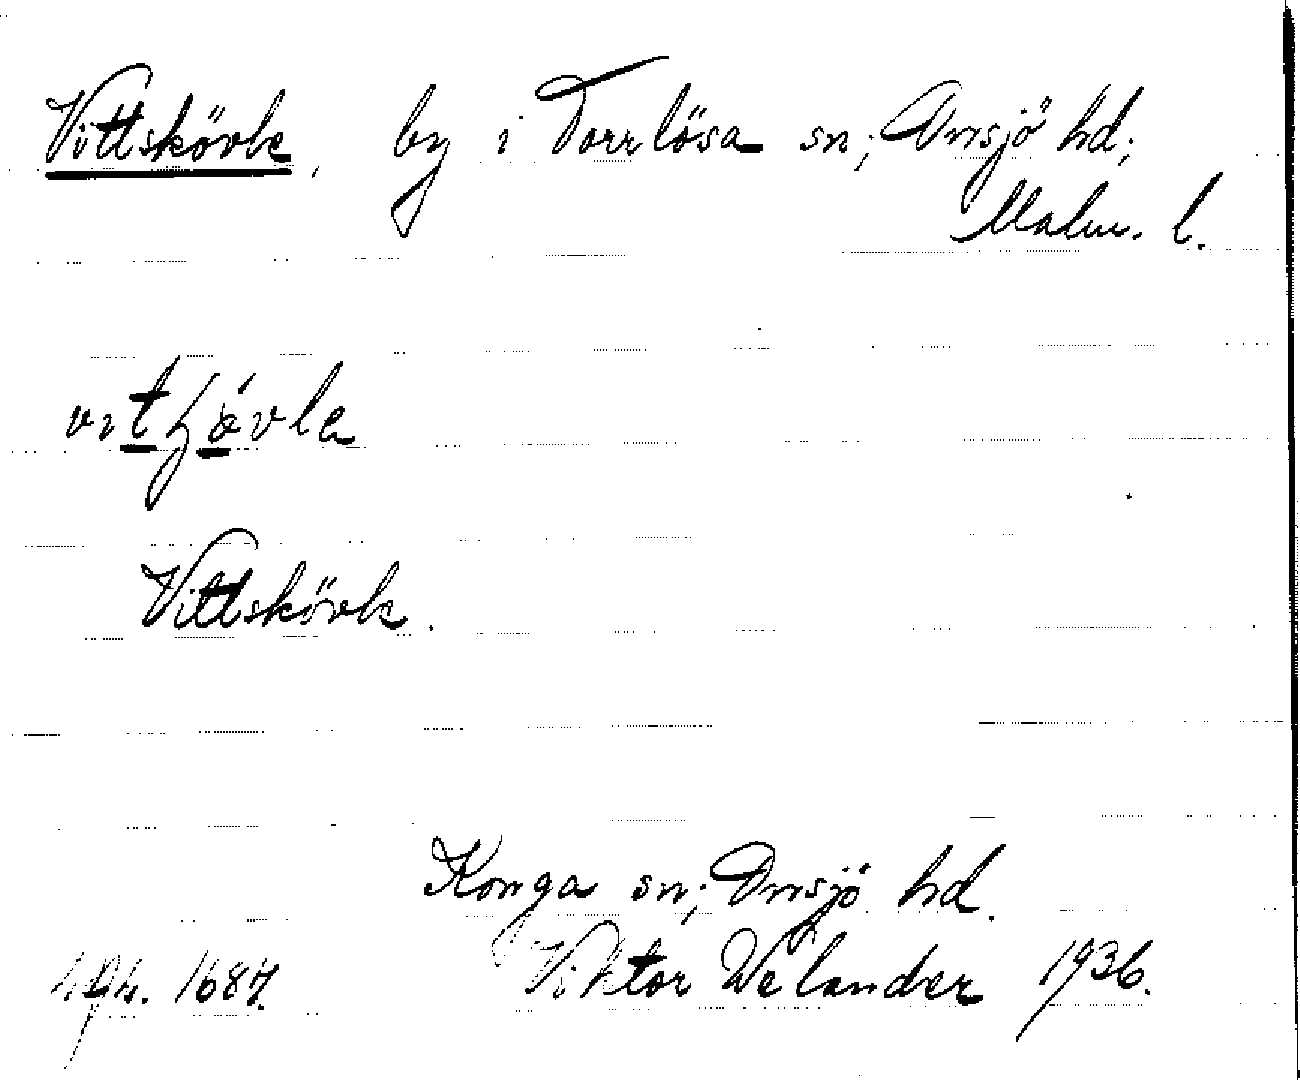 Vittskövle, by i Torrlösa sn; Onsjö hd;
Malm. l.
Vittskövle.
Konga sn; Onsjö hd.
1687. Viktor Welander 1936.